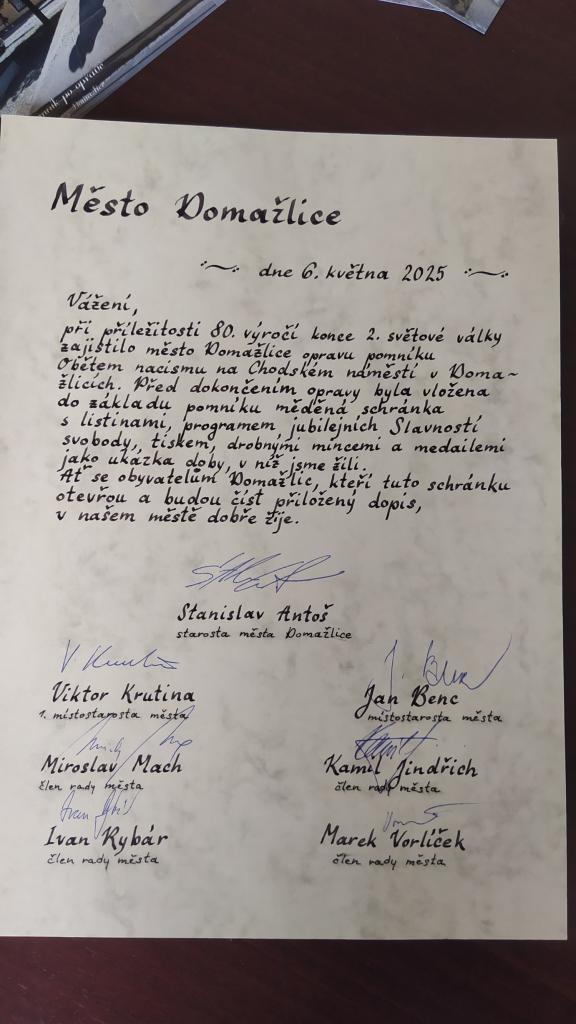 po opravě
Domažlice
Město Domažlice
dne 6. května 2025
Vážení,
při příležitosti 80. výročí konce 2. světové války
zajistilo město Domažlice opravu pomníku
Obětem nacismu na Chodském náměstí v Doma-
žlicích. Před dokončením opravy byla vložena
do základu pomníku měděná schránka
s listinami, programem jubilejních Slavností
svobody, tiskem, drobnými mincemi a medailemi
jako ukázka doby, v níž jsme žili.
Ať se obyvatelům Domažlic, kteří tuto schránku
otevřou a budou číst přiložený dopis,
v našem městě dobře žije.
Stanislav Antoš
starosta města Domažlice
V. Krutina
Viktor Krutina
1. místostarosta města
J. Benc
Jan Benc
místostarosta města
Miroslav Mach
člen rady města
Kamil Jindřich
člen rady města
Ivan Rybár
člen rady města
Marek Vorlíček
člen rady města